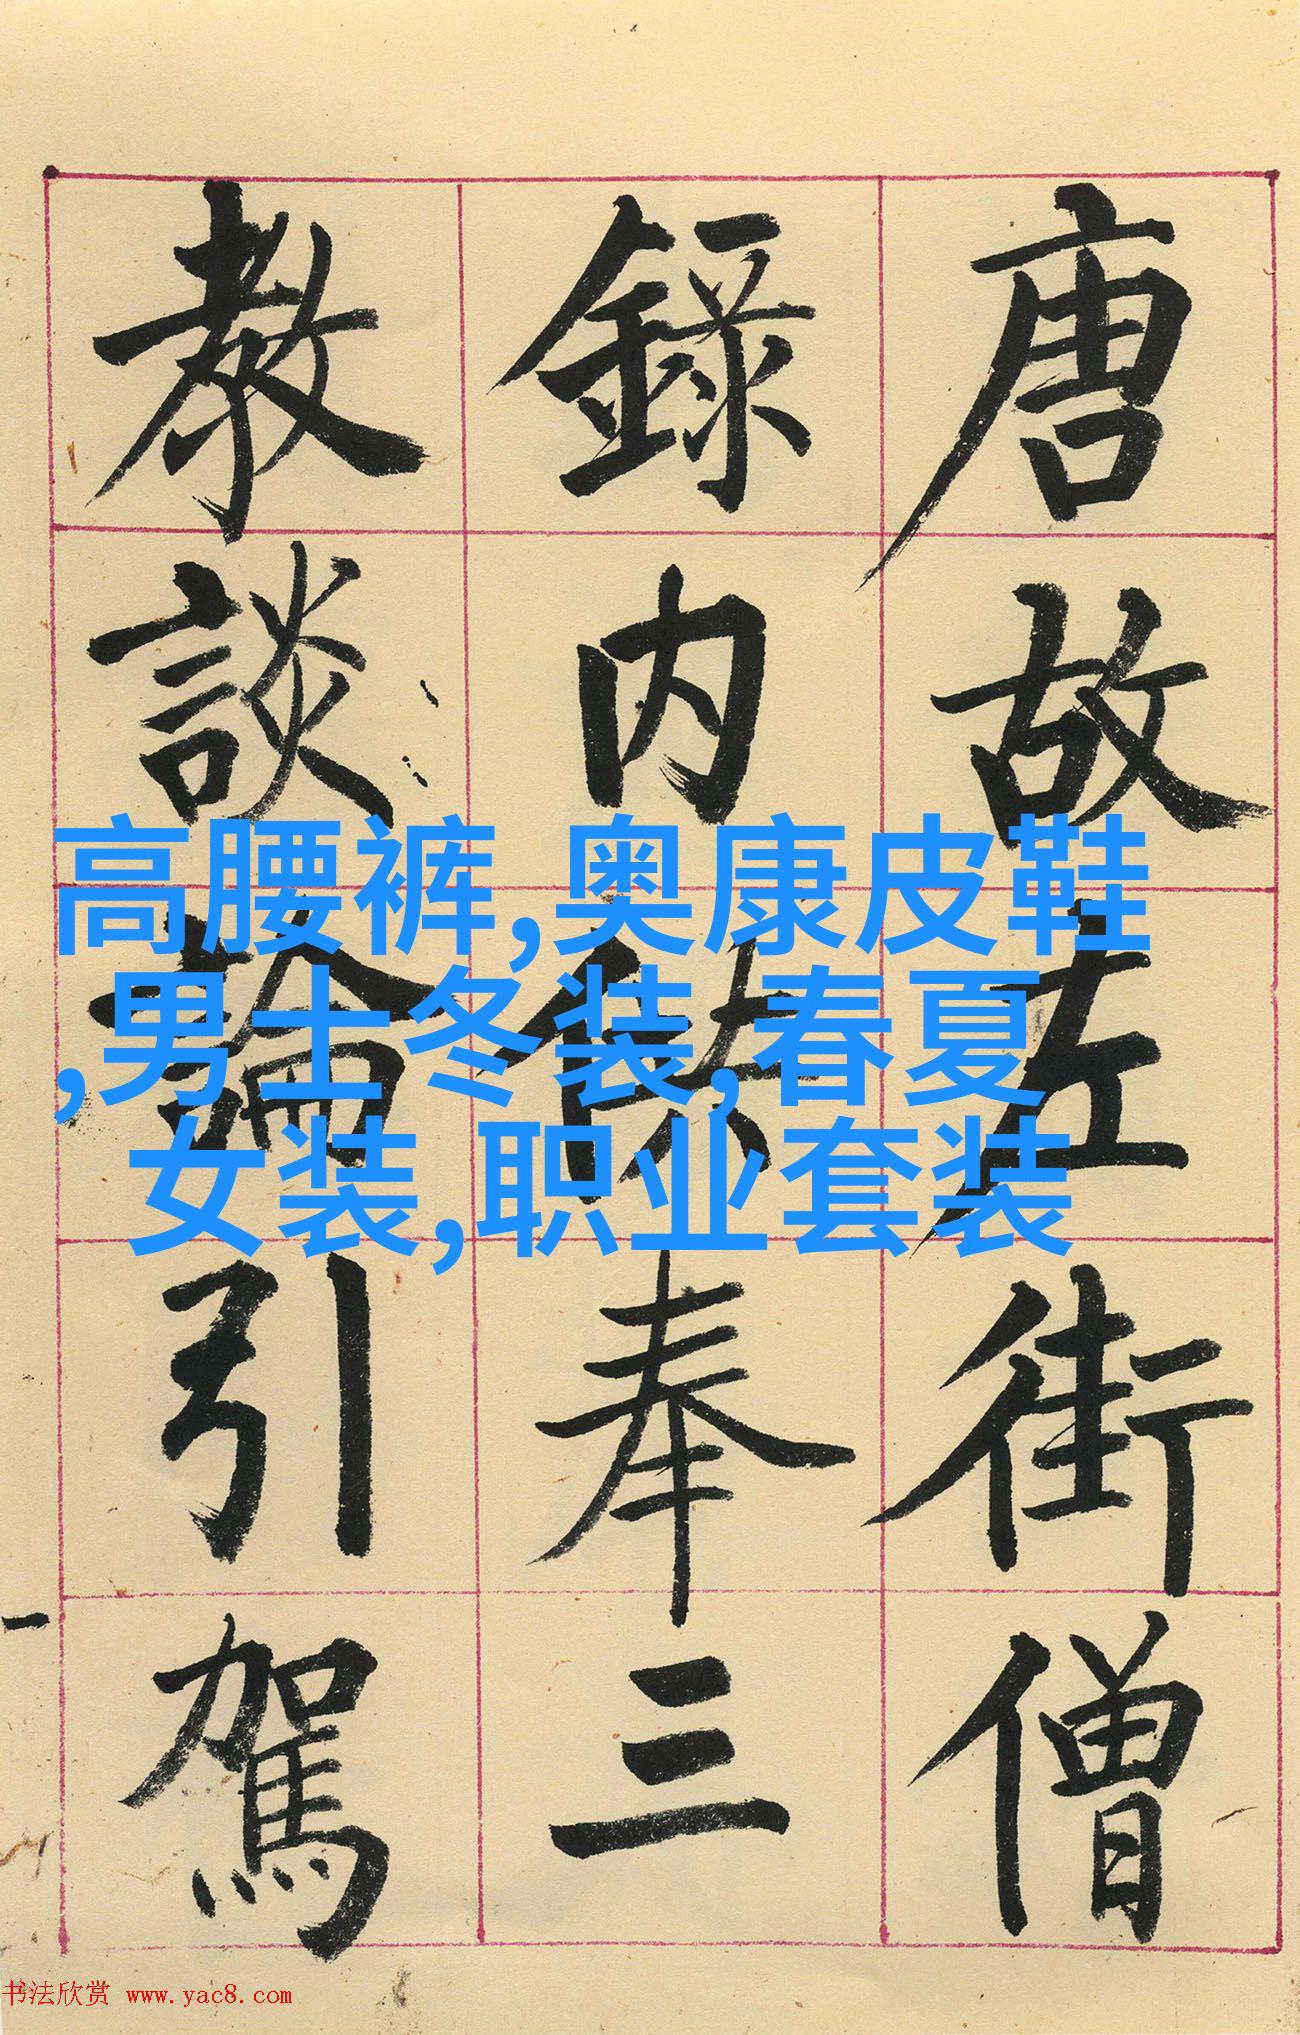 唐故左街僧
錄内供奉三
教談論引駕
高腰裤,奥康皮鞋
,男士冬装,春夏
女装,职业套装
书法欣赏 www.yac8.com